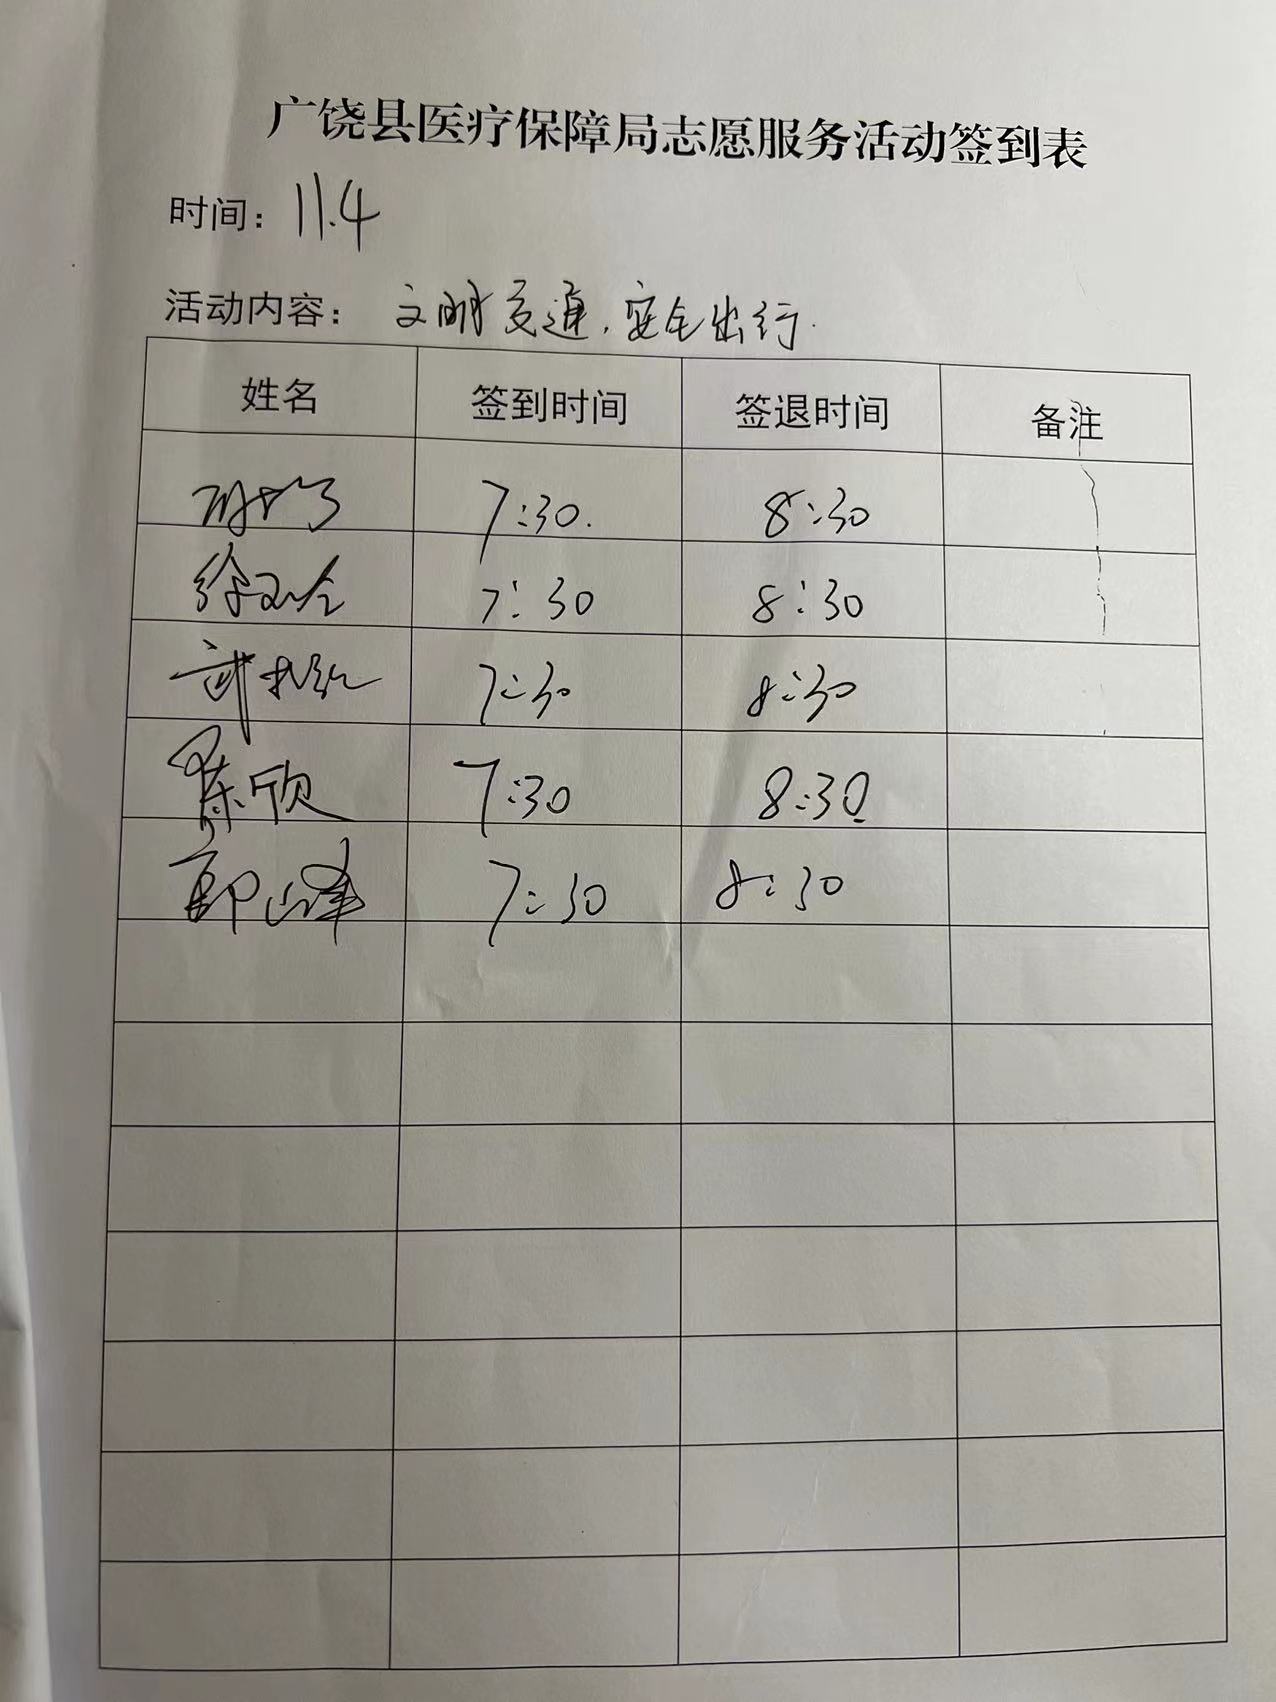 广饶县医疗保障局志愿服务活动签到表
时间：11.4
活动内容： 文明交通，安全出行.
姓名 签到时间 签退时间 备注
7:30. 8:30
7:30 8:30
7:30 8:30
陈欣 7:30 8:30
山峰 7:30 8:30